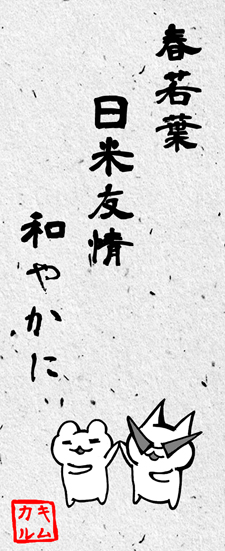 春若葉
日米友情
和やかに
キム
カル